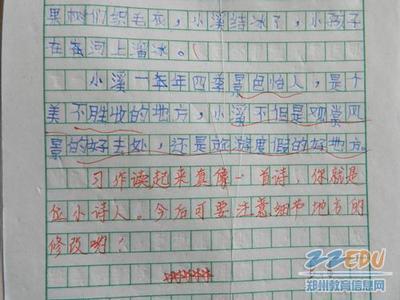 果树们织毛衣,小溪结冰了,小孩子
在在河上溜冰。
小溪一年四季景色怡人,是个
美不胜收的地方,小溪不但是观赏风
景的好去处,还是旅游度假的好地方。
习作读起来真像一首诗,你就是
位小诗人。今后可要注意细节地方的
修改哟!
ZZEDU
郑州教育信息网